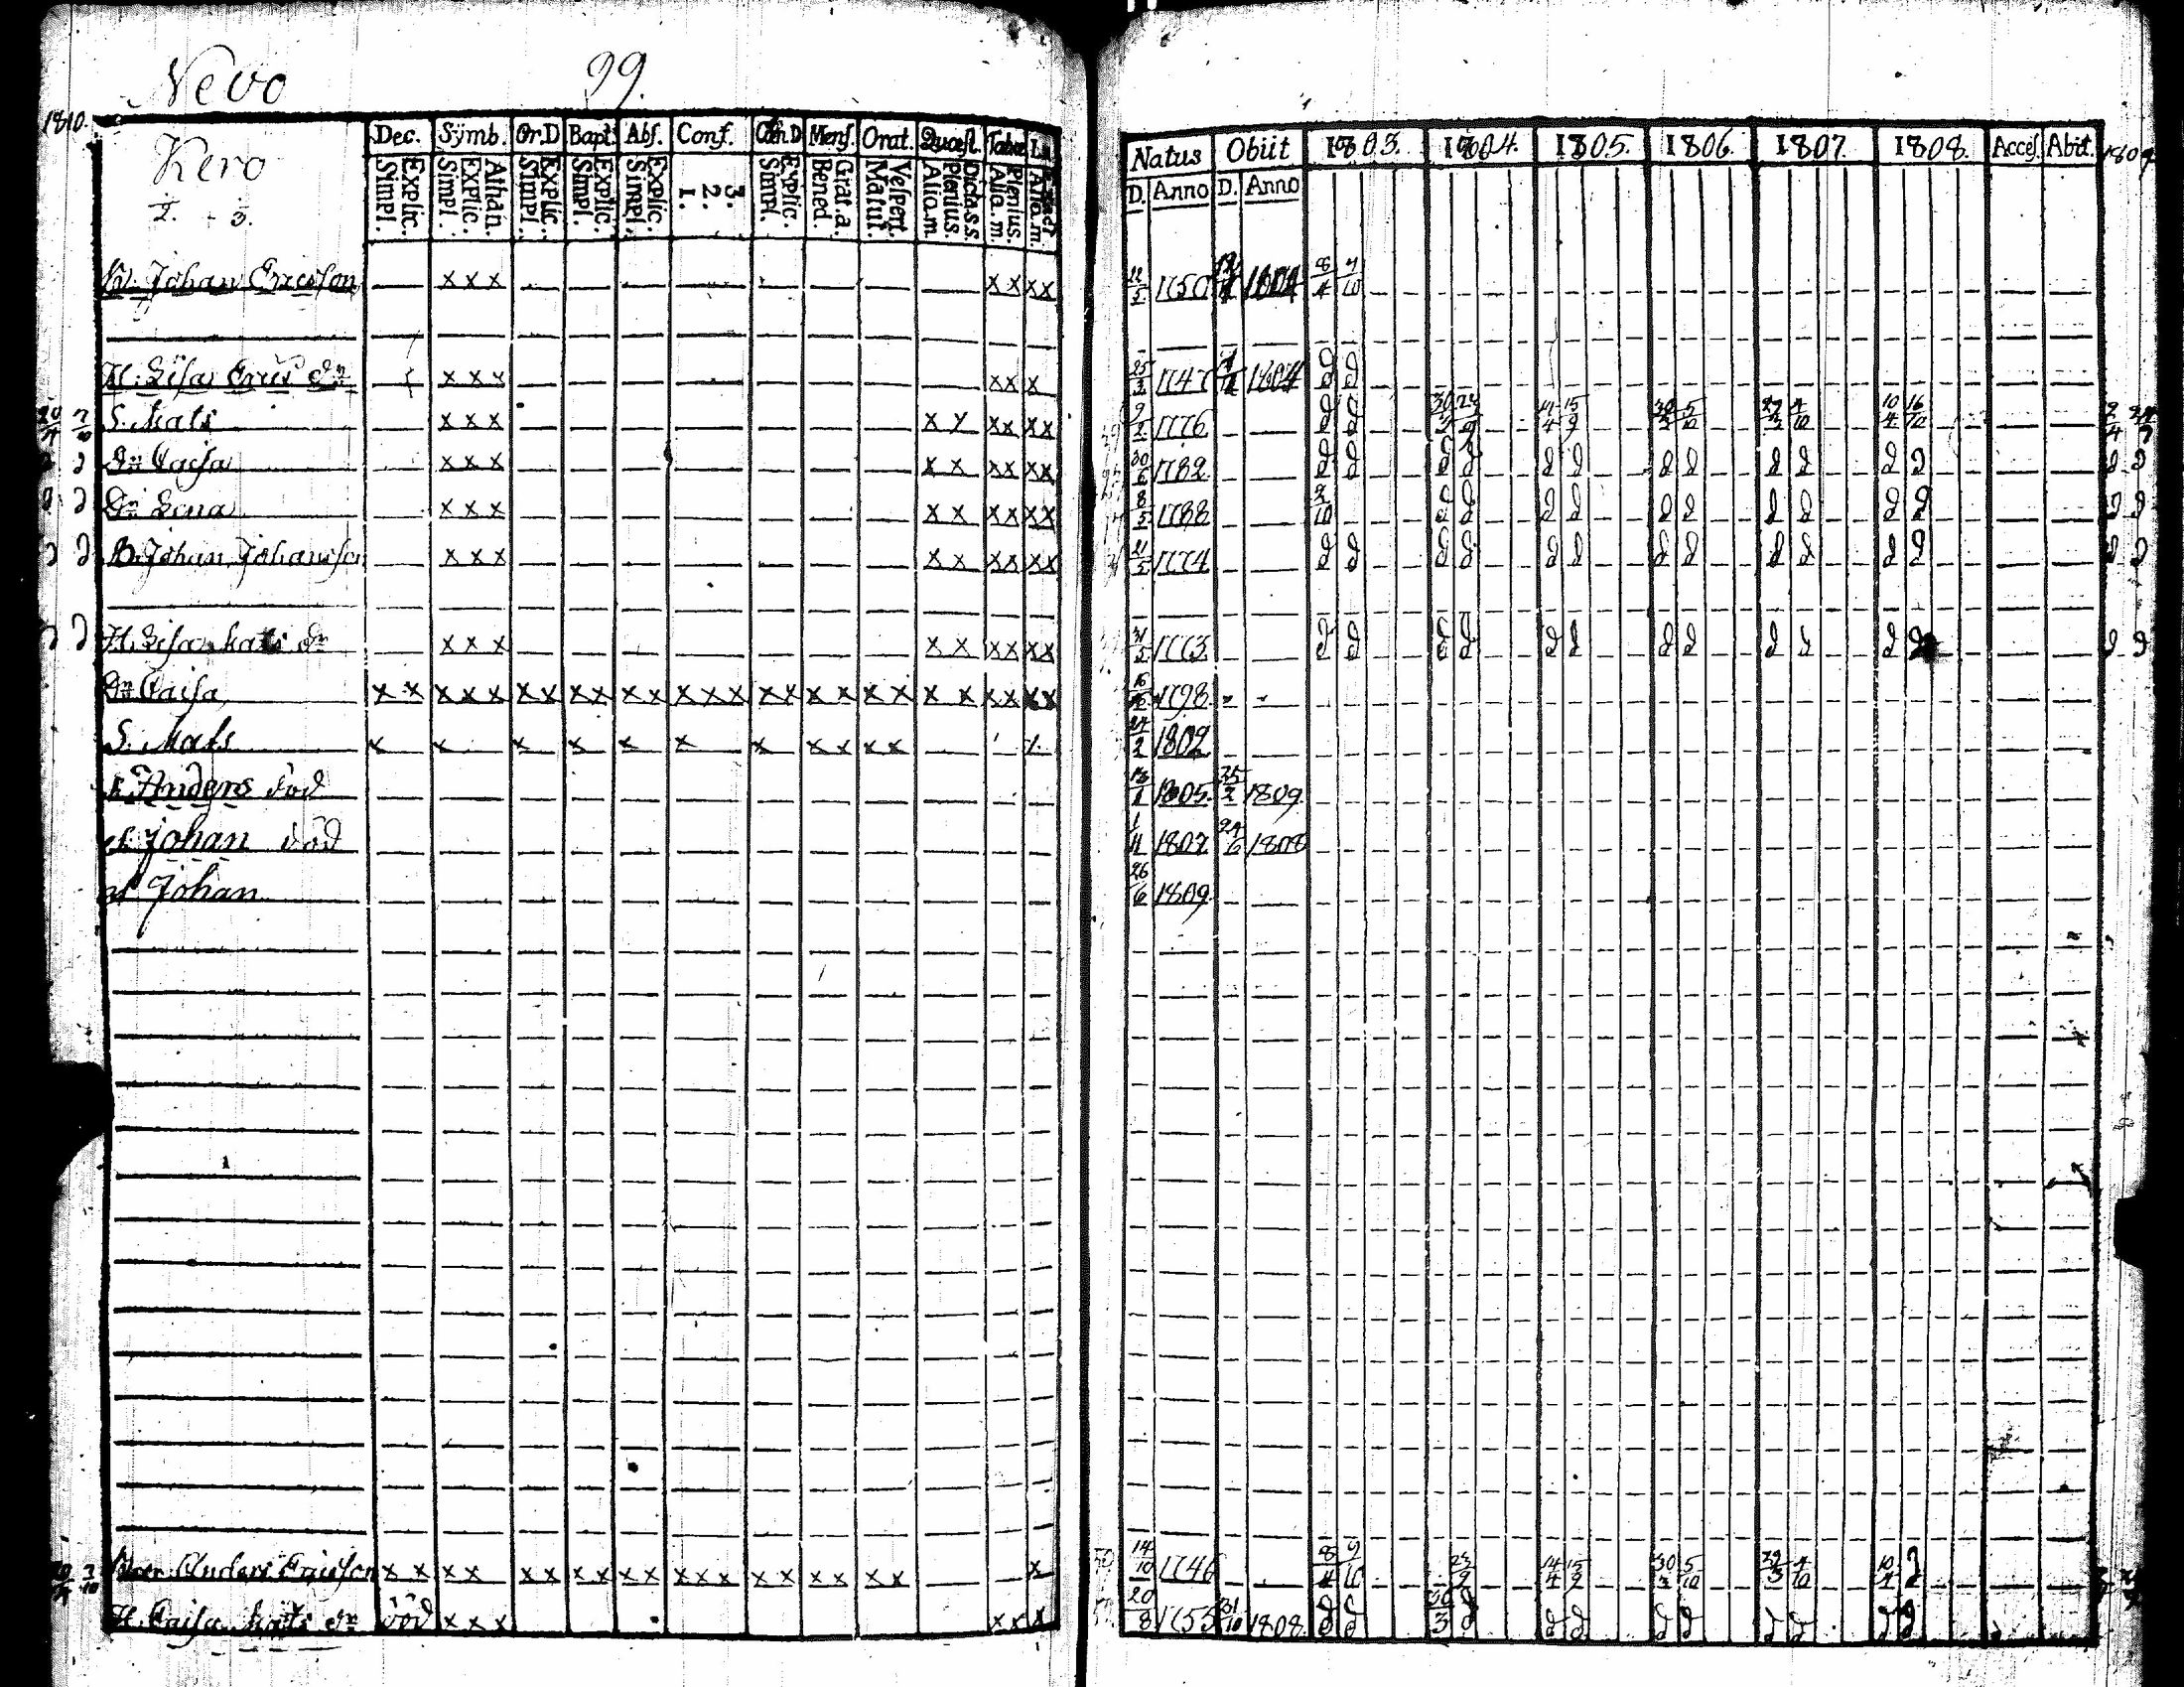 Nevo 99.
1810.
Kero
2. + 3.
Dec. Symb. Or.D Bapt. Abs. Conf. Cœn.D Mens. Orat. Quæst. Tabæ
Explic. Simpl. Athan. Explic. Simpl. Explic. Simpl. Explic. Simpl. Explic. Simpl. 3. 2. 1. Explic. Simpl. Grat.a. Bened. Vespert. Matut. Dicta s.s. Plenius. Aliq.m. Plenius. Aliq.m. Aliq.m.
Natus Obiit 1803. 1804. 1805. 1806. 1807. 1808. Acces. Abit. 1809
D. Anno D. Anno
Johan Ericsson — x x x — — — — — — — x x x x 22/5 1750 1804 8/4 9/10
H. Lisa Erics dr — x x x — — — — — — — — x x x 25/3 1747 1804 d d
20/4 7/10 S. Mats — x x x — — — — — — — x x x x x x 9/2 1776 d d 30/3 23/9 14/4 15/9 30/3 5/10 29/3 4/10 10/4 16/10
d d Dr Caisa — x x x — — — — — — — x x x x x x 30/6 1782 d d d d d d d d d d d d d d
d d Dr Lena — x x x — — — — — — — x x x x x x 8/5 1788 9/10 d d d d d d d d d d d d
d d Johan Johansson — x x x — — — — — — — x x x x x x 21/5 1774 d d d d d d d d d d d d d d
d d H. Lisa Mats dr — x x x — — — — — — — x x x x x x 31/5 1773 d d d d d d d d d d d d d d
Dr Caisa x x x x x x x x x x x x x x x x x x x x x x x x x x x 1798
S. Mats x x x x x x x x x x x x 24/2 1802
Anders död 1805. 25/2 1809.
Johan död 1/11 1807 24/6 1808
Johan 26/6 1809.
Anders Ericsson x x x x x x x x x x x x x x x x x x x x x 14/10 1746 8/4 9/10 23/9 14/4 15/9 30/3 5/10 29/3 4/10 10/4 d
H. Caisa Mats dr död x x x x x x 20/8 1755 31/10 1808. d d 30/3 d d d d d d d d d